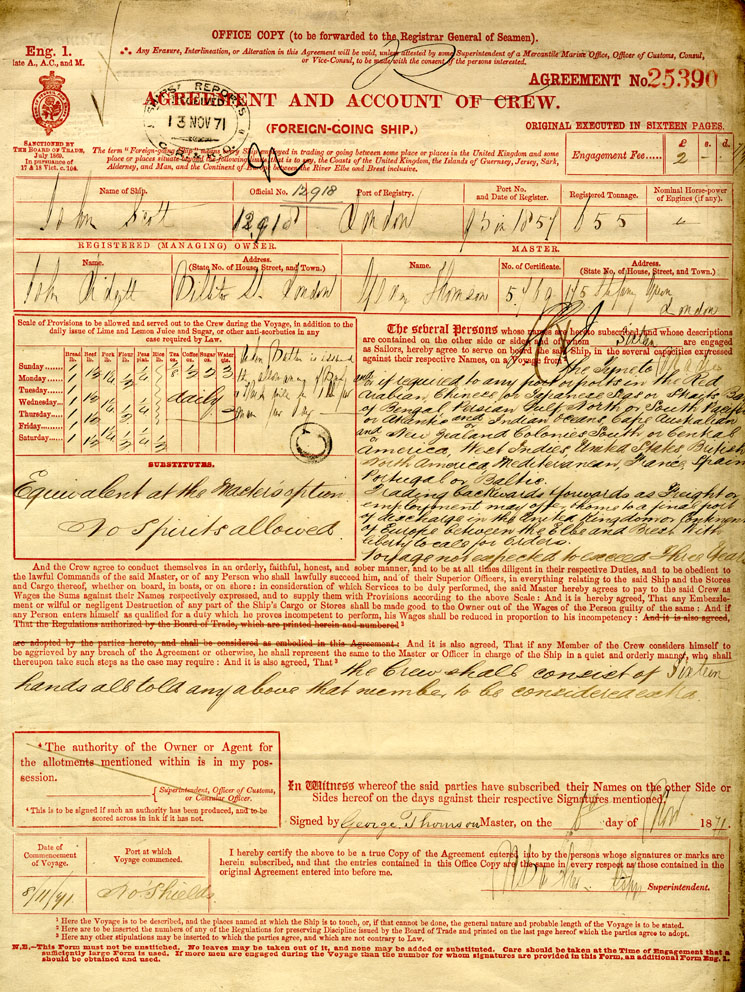 OFFICE COPY (to be forwarded to the Registrar General of Seamen).
Eng. 1.
late A., A.C., and M.
∴ Any Erasure, Interlineation, or Alteration in this Agreement will be void, unless attested by some Superintendent of a Mercantile Marine Office, Officer of Customs, Consul,
or Vice-Consul, to be made with the consent of the persons interested.
AGREEMENT No. 25390
SHIPS' REPORTS
RECEIVED
13 NOV 71
AGREEMENT AND ACCOUNT OF CREW.
(FOREIGN-GOING SHIP.)
ORIGINAL EXECUTED IN SIXTEEN PAGES.
SANCTIONED BY
THE BOARD OF TRADE,
July 1869.
In pursuance of
17 & 18 Vict. c. 104.
The term "Foreign-going Ship" means every Ship employed in trading or going between some place or places in the United Kingdom and some
place or places situate beyond the following limits, that is to say, the Coasts of the United Kingdom, the Islands of Guernsey, Jersey, Sark,
Alderney, and Man, and the Continent of Europe between the River Elbe and Brest inclusive.
£ s. d.
Engagement Fee..... 2 -
Name of Ship. Official No. 12918 Port of Registry. Port No. and Date of Register. Registered Tonnage. Nominal Horse-power of Engines (if any).
John Scott 12918 London 1857 655
REGISTERED (MANAGING) OWNER. MASTER.
Name. Address. (State No. of House, Street, and Town.) Name. No. of Certificate. Address. (State No. of House, Street, and Town.)
John Billiter St London Thomson London
Scale of Provisions to be allowed and served out to the Crew during the Voyage, in addition to the
daily issue of Lime and Lemon Juice and Sugar, or other anti-scorbutics in any
case required by Law.
Bread lb. Beef lb. Pork lb. Flour lb. Peas Pint Rice lb. Tea oz. Coffee oz. Sugar oz. Water qts.
Sunday
Monday
Tuesday
Wednesday daily
Thursday
Friday
Saturday
SUBSTITUTES.
Equivalent at the Master's option
No Spirits allowed
The several Persons whose names are hereto subscribed, and whose descriptions
are contained on the other side or sides, and of whom Sixteen are engaged
as Sailors, hereby agree to serve on board the said Ship, in the several capacities expressed
against their respective Names, on a Voyage from
the Tyne to
and if required to any port or ports in the Red
Arabian, Chinese or Japanese Seas or Straits
of Bengal Persian Gulf North or South Pacific
or Atlantic and or Indian Oceans, Cape Australian
and or New Zealand Colonies South or Central
America, West Indies, United States, British
North America, Mediterranean, France, Spain
Portugal or Baltic.
Trading backwards & forwards as Freight or
employment may offer home to a final port
of discharge in the United Kingdom or Continent
of Europe between the Elbe and Brest with
liberty to call for orders.
Voyage not expected to exceed Three Years
And the Crew agree to conduct themselves in an orderly, faithful, honest, and sober manner, and to be at all times diligent in their respective Duties, and to be obedient to
the lawful Commands of the said Master, or of any Person who shall lawfully succeed him, and of their Superior Officers, in everything relating to the said Ship and the Stores
and Cargo thereof, whether on board, in boats, or on shore: in consideration of which Services to be duly performed, the said Master hereby agrees to pay to the said Crew as
Wages the Sums against their Names respectively expressed, and to supply them with Provisions according to the above Scale: And it is hereby agreed, That any Embezzle-
ment or wilful or negligent Destruction of any part of the Ship's Cargo or Stores shall be made good to the Owner out of the Wages of the Person guilty of the same: And if
any Person enters himself as qualified for a duty which he proves incompetent to perform, his Wages shall be reduced in proportion to his incompetency: And it is also agreed,
That the Regulations authorized by the Board of Trade, which are printed herein and numbered ²
are adopted by the parties hereto, and shall be considered as embodied in this Agreement: And it is also agreed, That if any Member of the Crew considers himself to
be aggrieved by any breach of the Agreement or otherwise, he shall represent the same to the Master or Officer in charge of the Ship in a quiet and orderly manner, who shall
thereupon take such steps as the case may require: And it is also agreed, That ³
the Crew shall consist of Sixteen
hands all told any above that number to be considered extra.
⁴ The authority of the Owner or Agent for
the allotments mentioned within is in my pos-
session.
Superintendent, Officer of Customs,
or Consular Officer.
⁴ This is to be signed if such an authority has been produced, and to be
scored across in ink if it has not.
In Witness whereof the said parties have subscribed their Names on the other Side or
Sides hereof on the days against their respective Signatures mentioned.
Signed by George Thomson Master, on the 8 day of Nov 1871
Date of Commencement of Voyage. Port at which Voyage commenced.
8/11/71 No Shields
I hereby certify the above to be a true Copy of the Agreement entered into by the persons whose signatures or marks are
herein subscribed, and that the entries contained in this Office Copy are the same in every respect as those contained in the
original Agreement entered into before me.
Superintendent.
¹ Here the Voyage is to be described, and the places named at which the Ship is to touch, or, if that cannot be done, the general nature and probable length of the Voyage is to be stated.
² Here are to be inserted the numbers of any of the Regulations for preserving Discipline issued by the Board of Trade and printed on the last page hereof which the parties agree to adopt.
³ Here any other stipulations may be inserted to which the parties agree, and which are not contrary to Law.
N.B.—This Form must not be unstitched. No leaves may be taken out of it, and none may be added or substituted. Care should be taken at the Time of Engagement that a
sufficiently large Form is used. If more men are engaged during the Voyage than the number for whom signatures are provided in this Form, an additional Form Eng. 1.
should be obtained and used.